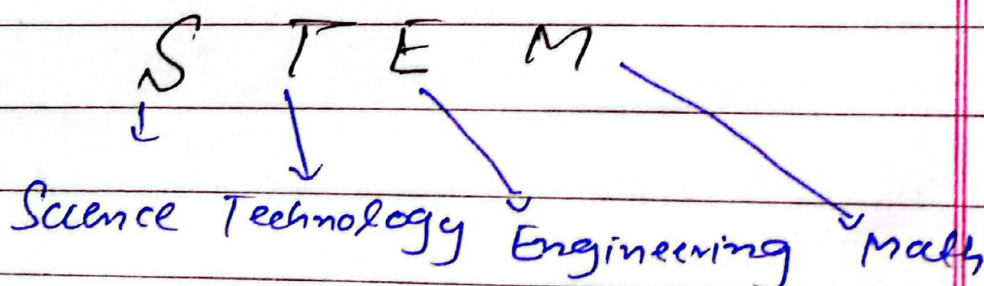 S T E M
Science Technology Engineering Math